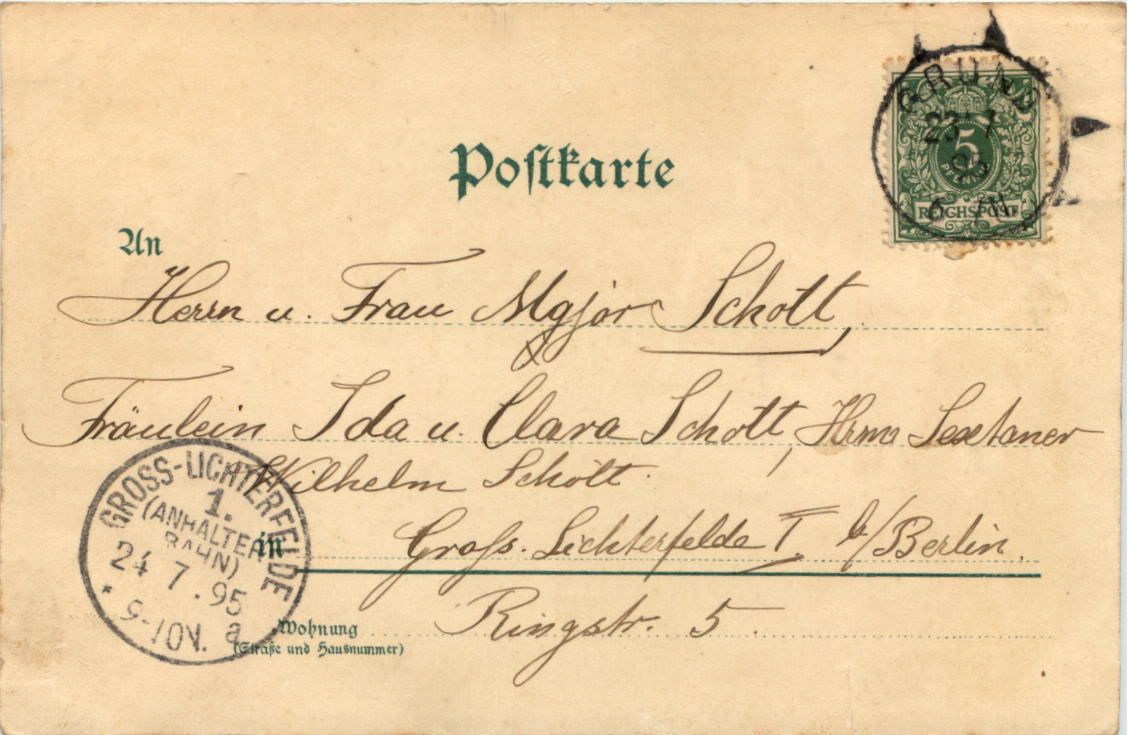 Postkarte
GRUND
23 7
95
5
REICHSPOST
An
Herrn u. Frau Major Schott,
Fräulein Ida u. Clara Schott, Herrn Sextaner
Wilhelm Schott.
in Gross-Lichterfelde I b/Berlin.
Wohnung Ringstr. 5.
(Straße und Hausnummer)
GROSS-LICHTERFELDE
1.
(ANHALTER
BAHN)
24 7.95
* 9-10V. a